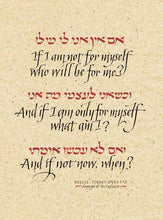 אם אין אני לי מי לי
If I am not for myself
who will be for me?
וכשאני לעצמי מה אני
And if I am only for myself
what am I?
ואם לא עכשו אימתי
And if not now, when?